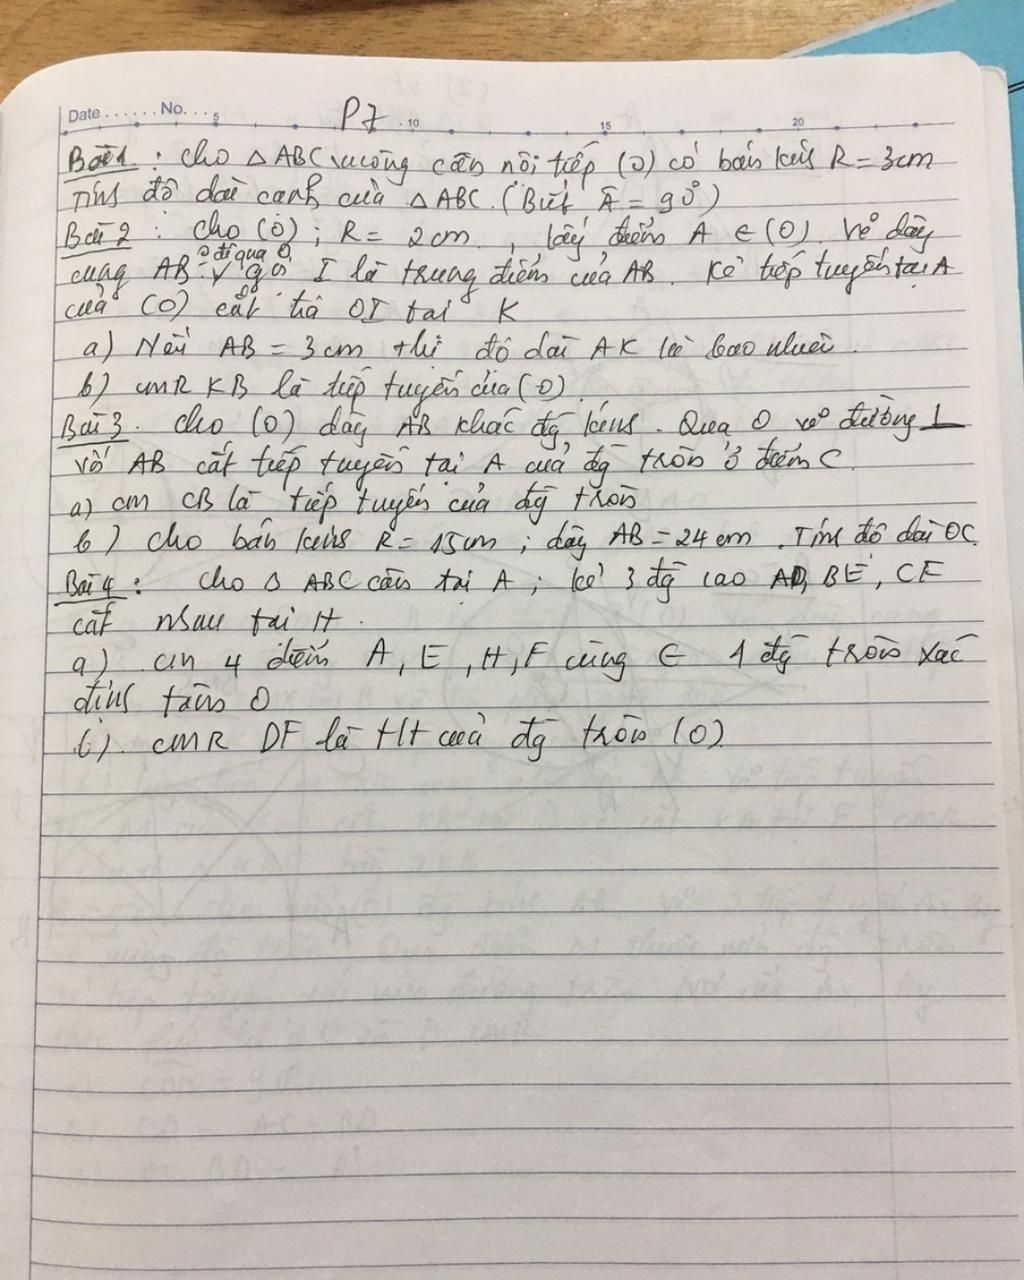 Date ...... No. ... 5 P7 10 15 20
Bài 1 : cho △ ABC vuông cân nội tiếp (O) có bán kính R = 3cm
Tính độ dài cạnh của △ ABC. (Biết Â = 90°)
Bài 2 : cho (O) ; R = 2cm , lấy điểm A ∈ (O) vẽ dây
cung AB ko đi qua O, gọi I là trung điểm của AB. Kẻ tiếp tuyến tại A
của (O) cắt tia OI tại K
a) Nếu AB = 3cm thì độ dài AK là bao nhiêu.
b) CMR KB là tiếp tuyến của (O)
Bài 3. cho (O) dây AB khác đg kính. Qua O vẽ đường ⊥
với AB cắt tiếp tuyến tại A của đg tròn ở điểm C
a) cm CB là tiếp tuyến của đg tròn
b) cho bán kính R = 15cm ; dây AB = 24 cm . Tính độ dài OC
Bài 4 : cho △ ABC cân tại A ; kẻ 3 đg cao AD, BE, CF
cắt nhau tại H .
a) cm 4 điểm A, E, H, F cùng ∈ 1 đg tròn xác
định tâm O
b). CMR DF là t/t của đg tròn (O)